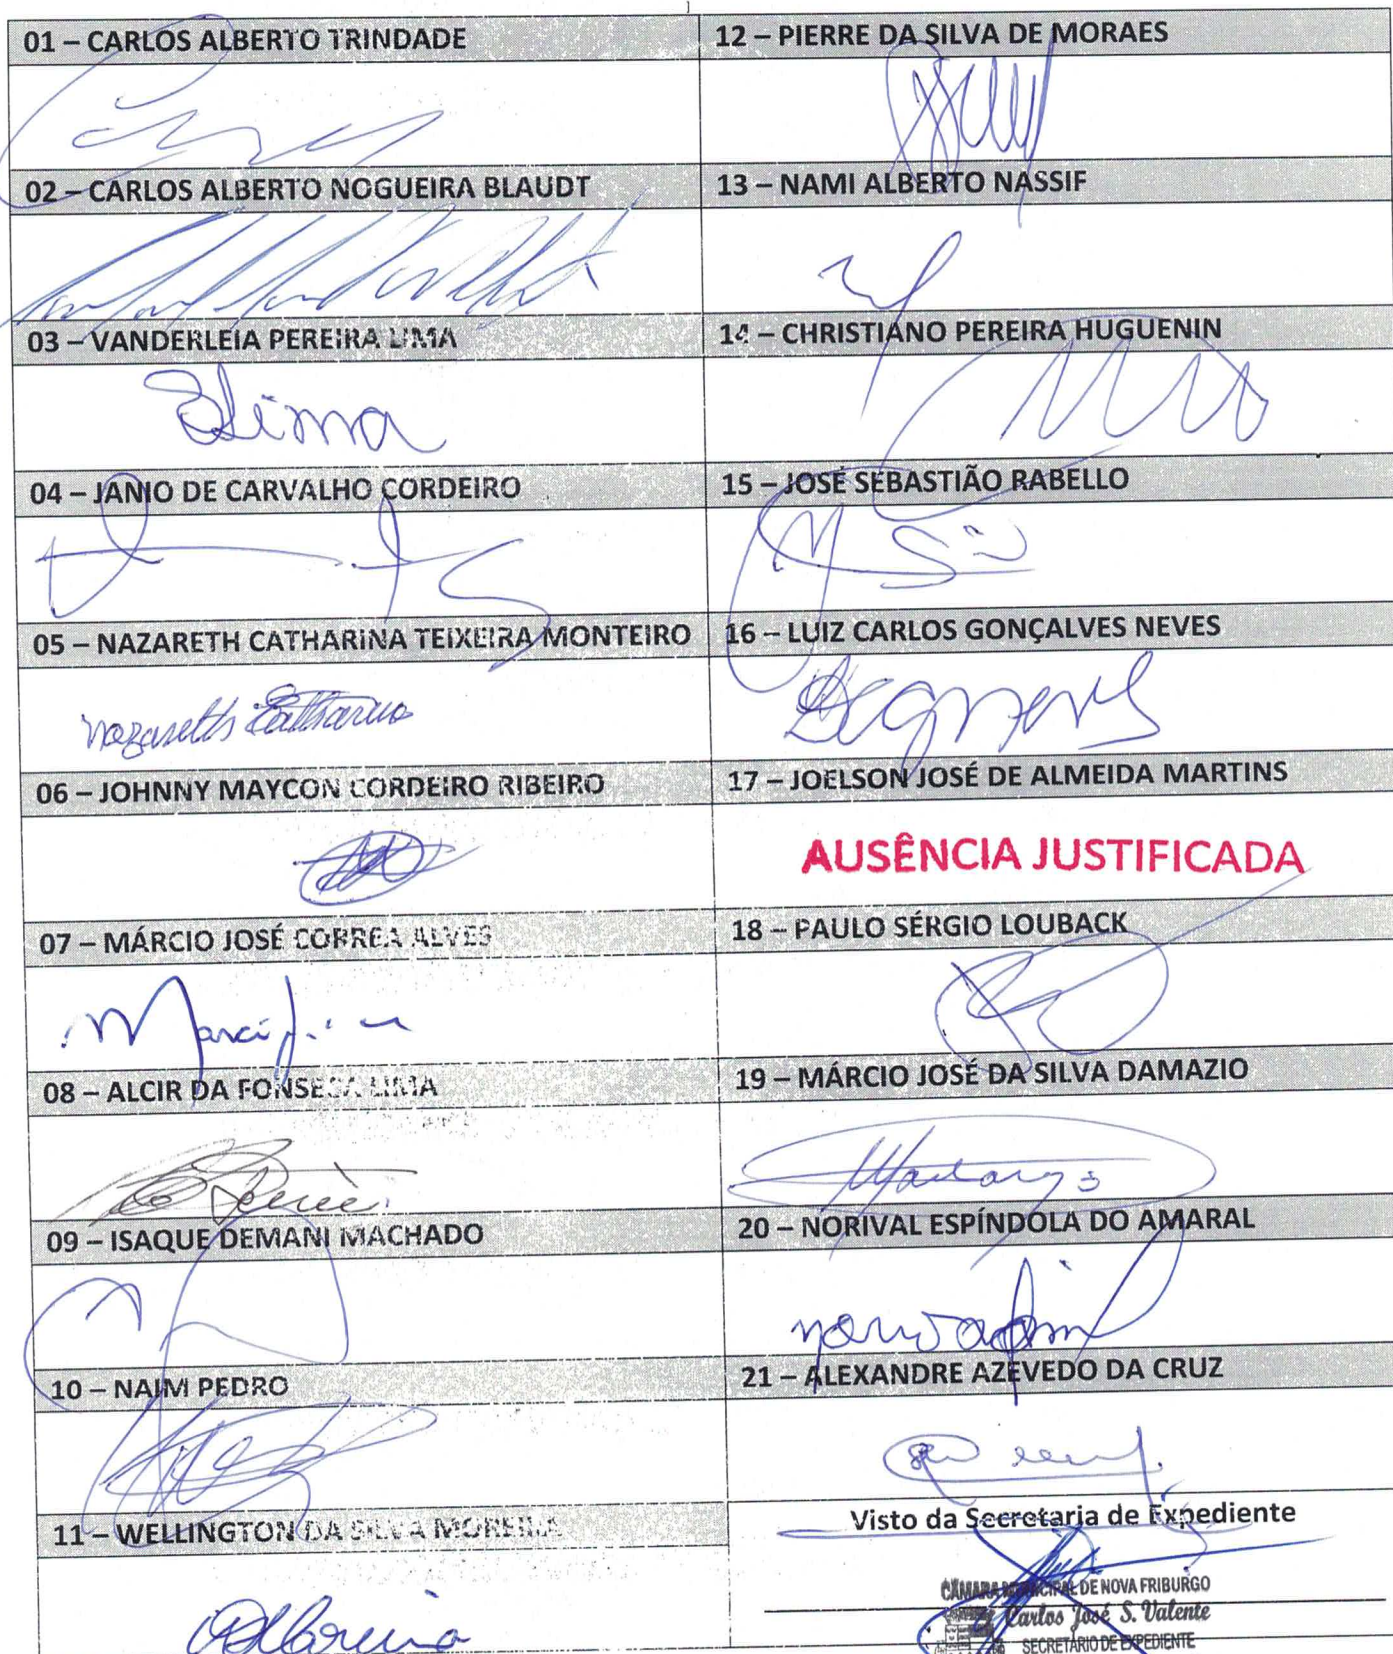 01 – CARLOS ALBERTO TRINDADE
02 – CARLOS ALBERTO NOGUEIRA BLAUDT
03 – VANDERLÉIA PEREIRA LIMA
Lima
04 – JANIO DE CARVALHO CORDEIRO
05 – NAZARETH CATHARINA TEIXEIRA MONTEIRO
Nazareth Catharina
06 – JOHNNY MAYCON CORDEIRO RIBEIRO
07 – MÁRCIO JOSÉ CORREA ALVES
08 – ALCIR DA FONSECA LIMA
09 – ISAQUE DEMANI MACHADO
10 – NAIM PEDRO
11 – WELLINGTON DA SILVA MOREIRA
12 – PIERRE DA SILVA DE MORAES
13 – NAMI ALBERTO NASSIF
14 – CHRISTIANO PEREIRA HUGUENIN
15 – JOSÉ SEBASTIÃO RABELLO
16 – LUIZ CARLOS GONÇALVES NEVES
17 – JOELSON JOSÉ DE ALMEIDA MARTINS
AUSÊNCIA JUSTIFICADA
18 – PAULO SÉRGIO LOUBACK
19 – MÁRCIO JOSÉ DA SILVA DAMAZIO
20 – NORIVAL ESPÍNDOLA DO AMARAL
21 – ALEXANDRE AZEVEDO DA CRUZ
Visto da Secretaria de Expediente
CÂMARA MUNICIPAL DE NOVA FRIBURGO
Carlos José S. Valente
SECRETÁRIO DE EXPEDIENTE